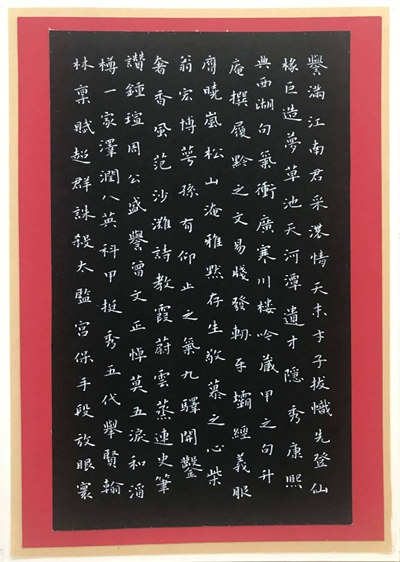 譽滿江南君采濃情天末才子拔幟先登仙
椽巨造夢草池天河潭遺才隱秀康熙
典西湖句氣衝廣寒川楼吟蕆甲之句升
庵撰履黔之文易牋發軔存壩經義服
膺曉嵐松山淹雅黙存生敬慕之心柴
翁宏博萼孫有仰止之氣九驛開鑿
奢香風范沙灘詩教霞蔚雲蒸連史筆
讚鍾瑄周公盛譽曾文正悼莫五淚和滔
樽一家澤潤八英科甲挺秀五代舉賢翰
林禀賦超群誅殺太監宮保手段放眼寰